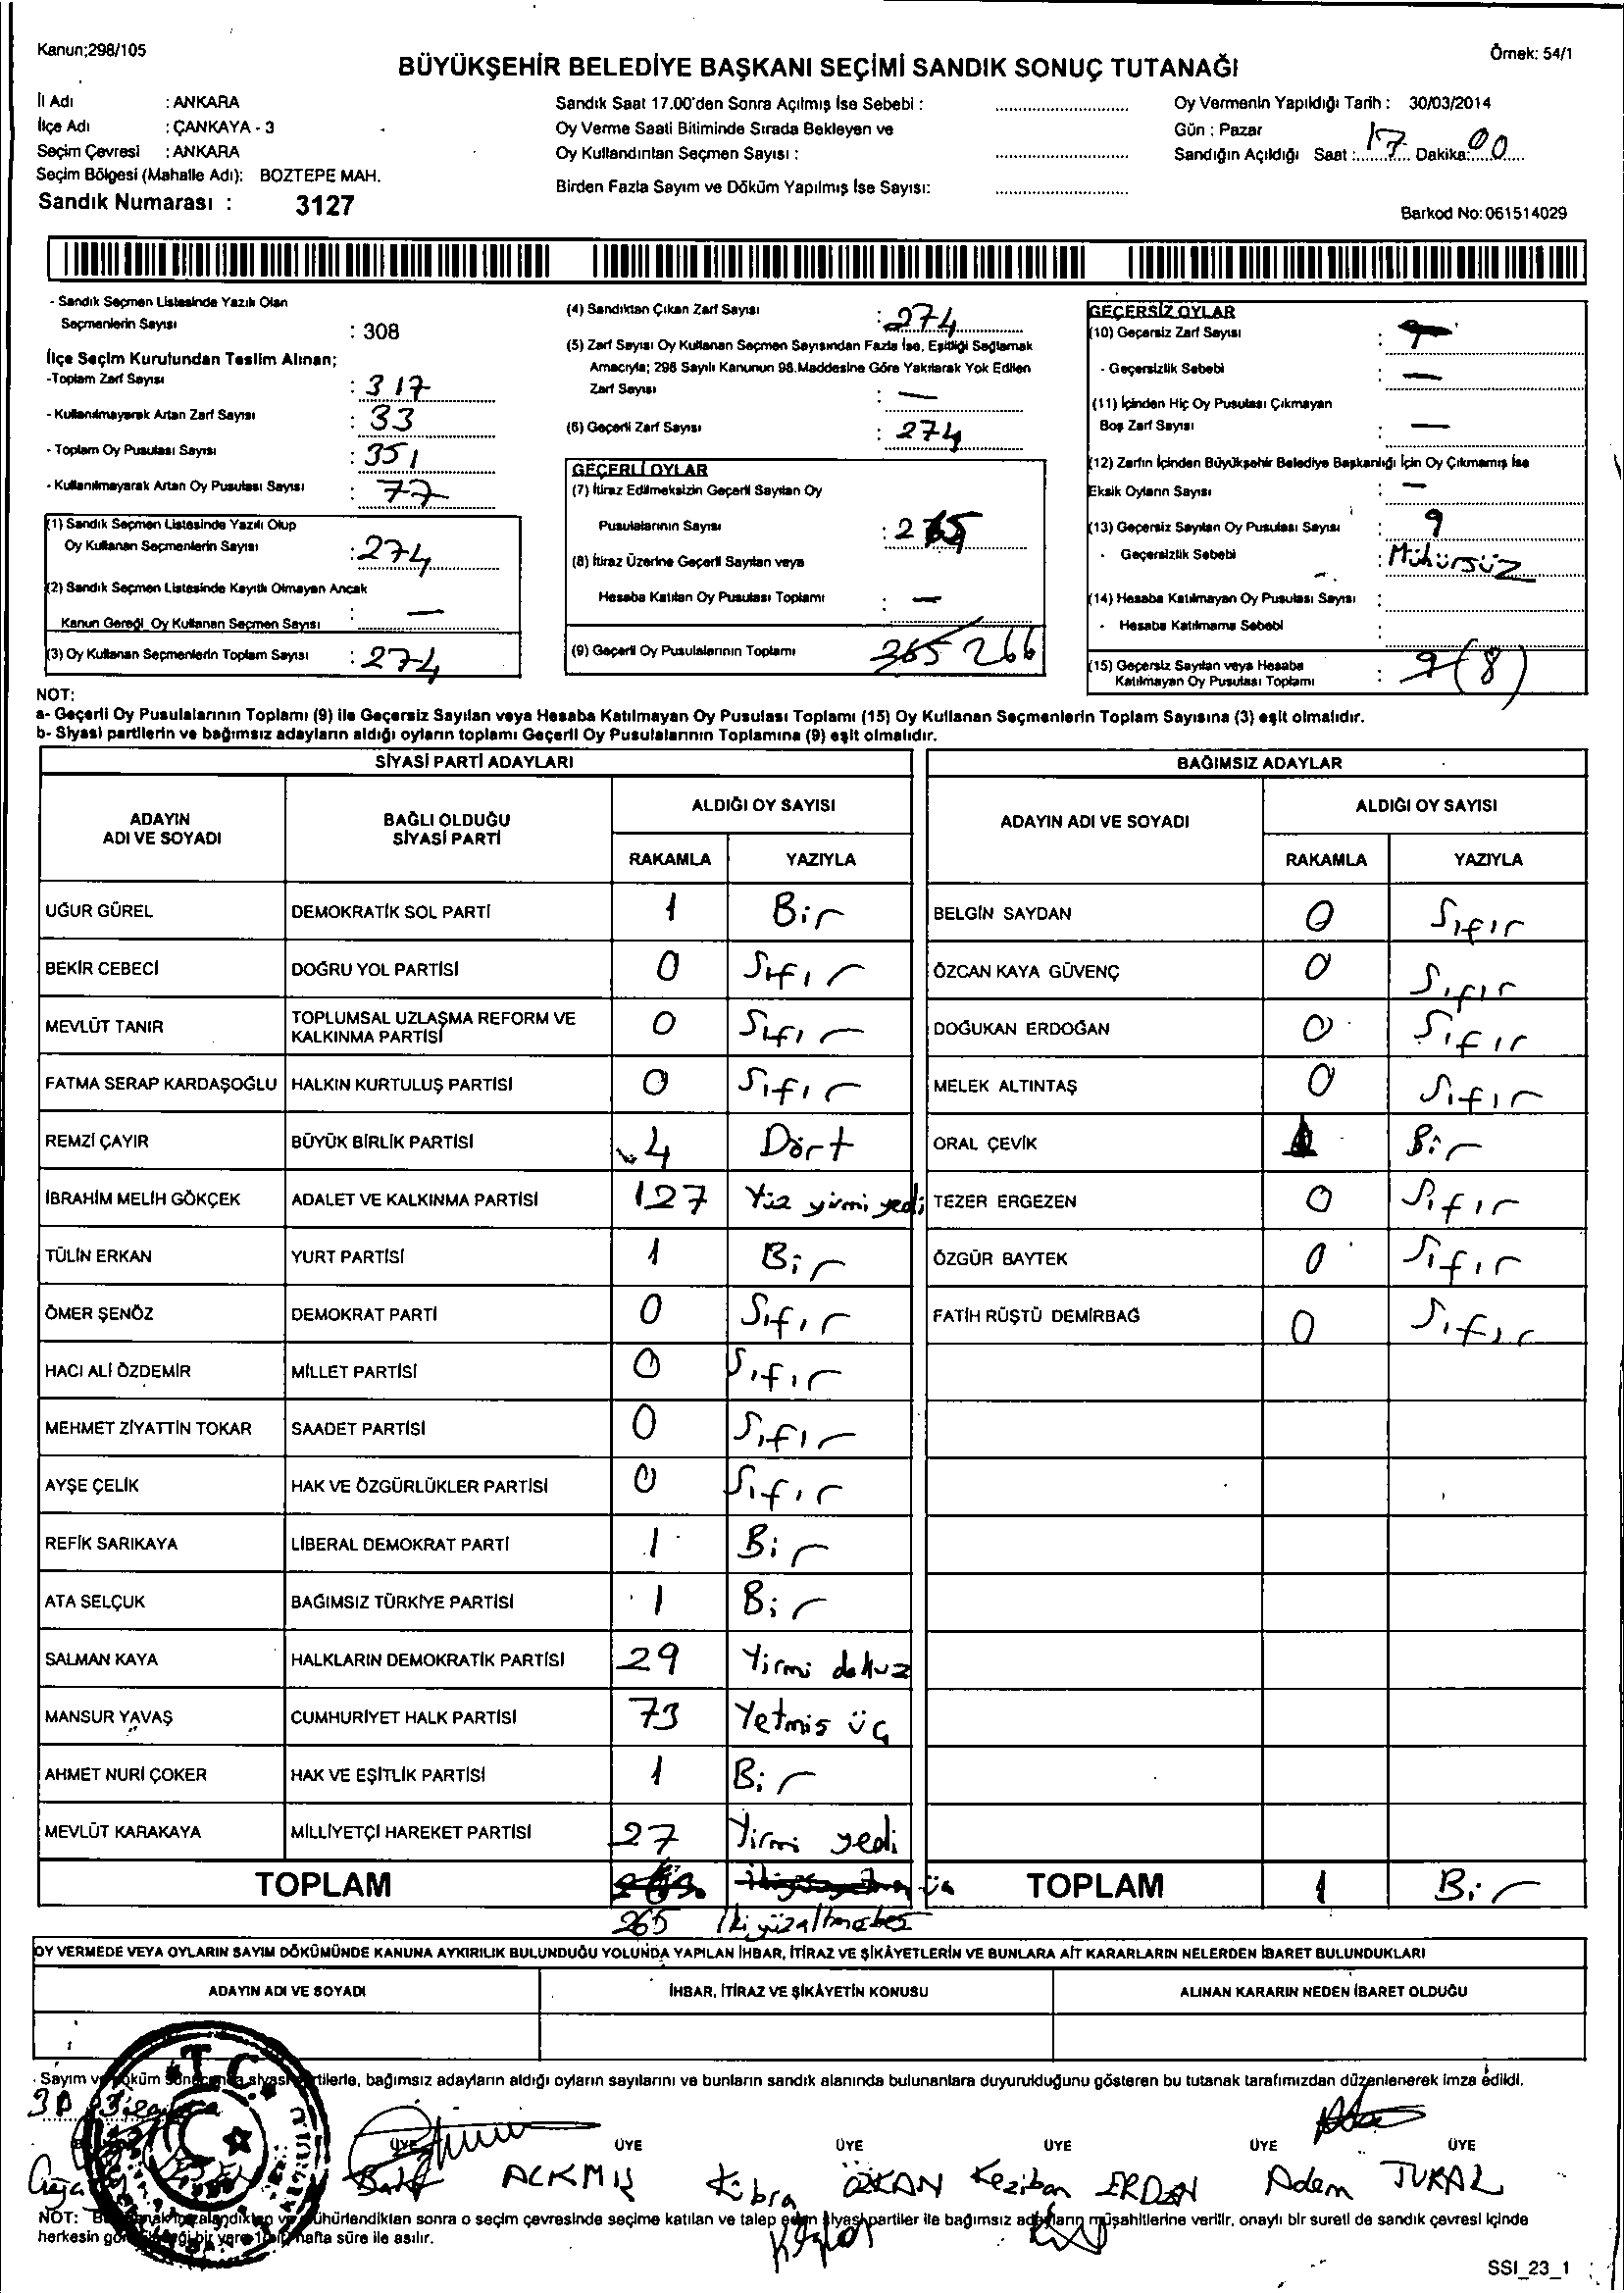 Kanun;298/105
Örnek: 54/1
BÜYÜKŞEHİR BELEDİYE BAŞKANI SEÇİMİ SANDIK SONUÇ TUTANAĞI
İl Adı : ANKARA
İlçe Adı : ÇANKAYA - 3
Seçim Çevresi : ANKARA
Seçim Bölgesi (Mahalle Adı): BOZTEPE MAH.
Sandık Numarası : 3127
Sandık Saat 17.00'den Sonra Açılmış İse Sebebi :
Oy Verme Saati Bitiminde Sırada Bekleyen ve
Oy Kullandırılan Seçmen Sayısı :
Birden Fazla Sayım ve Döküm Yapılmış İse Sayısı:
Oy Vermenin Yapıldığı Tarih : 30/03/2014
Gün : Pazar
Sandığın Açıldığı Saat : 17 Dakika: 00
Barkod No: 061514029
- Sandık Seçmen Listesinde Yazılı Olan
Seçmenlerin Sayısı : 308
İlçe Seçim Kurulundan Teslim Alınan;
-Toplam Zarf Sayısı : 317
- Kullanılmayarak Artan Zarf Sayısı : 33
- Toplam Oy Pusulası Sayısı : 351
- Kullanılmayarak Artan Oy Pusulası Sayısı : 77
(1) Sandık Seçmen Listesinde Yazılı Olup
Oy Kullanan Seçmenlerin Sayısı : 274
(2) Sandık Seçmen Listesinde Kayıtlı Olmayan Ancak
Kanun Gereği Oy Kullanan Seçmen Sayısı : —
(3) Oy Kullanan Seçmenlerin Toplam Sayısı : 274
(4) Sandıktan Çıkan Zarf Sayısı : 274
(5) Zarf Sayısı Oy Kullanan Seçmen Sayısından Fazla İse, Eşitliği Sağlamak
Amacıyla; 298 Sayılı Kanunun 98.Maddesine Göre Yakılarak Yok Edilen
Zarf Sayısı : —
(6) Geçerli Zarf Sayısı : 274
GEÇERLİ OYLAR
(7) İtiraz Edilmeksizin Geçerli Sayılan Oy
Pusulalarının Sayısı : 265
(8) İtiraz Üzerine Geçerli Sayılan veya
Hesaba Katılan Oy Pusulası Toplamı : —
(9) Geçerli Oy Pusulalarının Toplamı 365 266
GEÇERSİZ OYLAR
(10) Geçersiz Zarf Sayısı :
- Geçersizlik Sebebi : —
(11) İçinden Hiç Oy Pusulası Çıkmayan
Boş Zarf Sayısı : —
(12) Zarfın İçinden Büyükşehir Belediye Başkanlığı İçin Oy Çıkmamış İse
Eksik Oyların Sayısı : —
(13) Geçersiz Sayılan Oy Pusulası Sayısı : 9
- Geçersizlik Sebebi : Mühürsüz
(14) Hesaba Katılmayan Oy Pusulası Sayısı :
- Hesaba Katılmama Sebebi :
(15) Geçersiz Sayılan veya Hesaba
Katılmayan Oy Pusulası Toplamı : 9 (8)
NOT:
a- Geçerli Oy Pusulalarının Toplamı (9) ile Geçersiz Sayılan veya Hesaba Katılmayan Oy Pusulası Toplamı (15) Oy Kullanan Seçmenlerin Toplam Sayısına (3) eşit olmalıdır.
b- Siyasi partilerin ve bağımsız adayların aldığı oyların toplamı Geçerli Oy Pusulalarının Toplamına (9) eşit olmalıdır.
SİYASİ PARTİ ADAYLARI
ADAYIN ADI VE SOYADI BAĞLI OLDUĞU SİYASİ PARTİ ALDIĞI OY SAYISI
RAKAMLA YAZIYLA
UĞUR GÜREL DEMOKRATİK SOL PARTİ 1 Bir
BEKİR CEBECİ DOĞRU YOL PARTİSİ 0 Sıfır
MEVLÜT TANIR TOPLUMSAL UZLAŞMA REFORM VE KALKINMA PARTİSİ 0 Sıfır
FATMA SERAP KARDAŞOĞLU HALKIN KURTULUŞ PARTİSİ 0 Sıfır
REMZİ ÇAYIR BÜYÜK BİRLİK PARTİSİ 4 Dört
İBRAHİM MELİH GÖKÇEK ADALET VE KALKINMA PARTİSİ 127 Yüz yirmi yedi
TÜLİN ERKAN YURT PARTİSİ 1 Bir
ÖMER ŞENÖZ DEMOKRAT PARTİ 0 Sıfır
HACI ALİ ÖZDEMİR MİLLET PARTİSİ 0 Sıfır
MEHMET ZİYATTİN TOKAR SAADET PARTİSİ 0 Sıfır
AYŞE ÇELİK HAK VE ÖZGÜRLÜKLER PARTİSİ 0 Sıfır
REFİK SARIKAYA LİBERAL DEMOKRAT PARTİ 1 Bir
ATA SELÇUK BAĞIMSIZ TÜRKİYE PARTİSİ 1 Bir
SALMAN KAYA HALKLARIN DEMOKRATİK PARTİSİ 29 Yirmi dokuz
MANSUR YAVAŞ CUMHURİYET HALK PARTİSİ 73 Yetmis üç
AHMET NURİ ÇOKER HAK VE EŞİTLİK PARTİSİ 1 Bir
MEVLÜT KARAKAYA MİLLİYETÇİ HAREKET PARTİSİ 27 Yirmi yedi
TOPLAM
265 İkiyüzaltmışbeş
BAĞIMSIZ ADAYLAR
ADAYIN ADI VE SOYADI ALDIĞI OY SAYISI
RAKAMLA YAZIYLA
BELGİN SAYDAN 0 Sıfır
ÖZCAN KAYA GÜVENÇ 0 Sıfır
DOĞUKAN ERDOĞAN 0 Sıfır
MELEK ALTINTAŞ 0 Sıfır
ORAL ÇEVİK 1 Bir
TEZER ERGEZEN 0 Sıfır
ÖZGÜR BAYTEK 0 Sıfır
FATİH RÜŞTÜ DEMİRBAĞ 0 Sıfır
TOPLAM 1 Bir
OY VERMEDE VEYA OYLARIN SAYIM DÖKÜMÜNDE KANUNA AYKIRILIK BULUNDUĞU YOLUNDA YAPILAN İHBAR, İTİRAZ VE ŞİKÂYETLERİN VE BUNLARA AİT KARARLARIN NELERDEN İBARET BULUNDUKLARI
ADAYIN ADI VE SOYADI İHBAR, İTİRAZ VE ŞİKÂYETİN KONUSU ALINAN KARARIN NEDEN İBARET OLDUĞU
T.C.
Sayım ve döküm sonucunda siyasi partilerle, bağımsız adayların aldığı oyların sayılarını ve bunların sandık alanında bulunanlara duyurulduğunu gösteren bu tutanak tarafımızdan düzenlenerek imza edildi.
ÜYE ÜYE ÜYE ÜYE ÜYE ÜYE
Kübra ÖZKAN Keziban ERDEN Adem TURAL
NOT: Bu tutanak imzalandıktan ve mühürlendikten sonra o seçim çevresinde seçime katılan ve talep eden siyasi partiler ile bağımsız adayların müşahitlerine verilir, onaylı bir sureti de sandık çevresi içinde
herkesin görebileceği bir yere 1 hafta süre ile asılır.
SSI_23_1